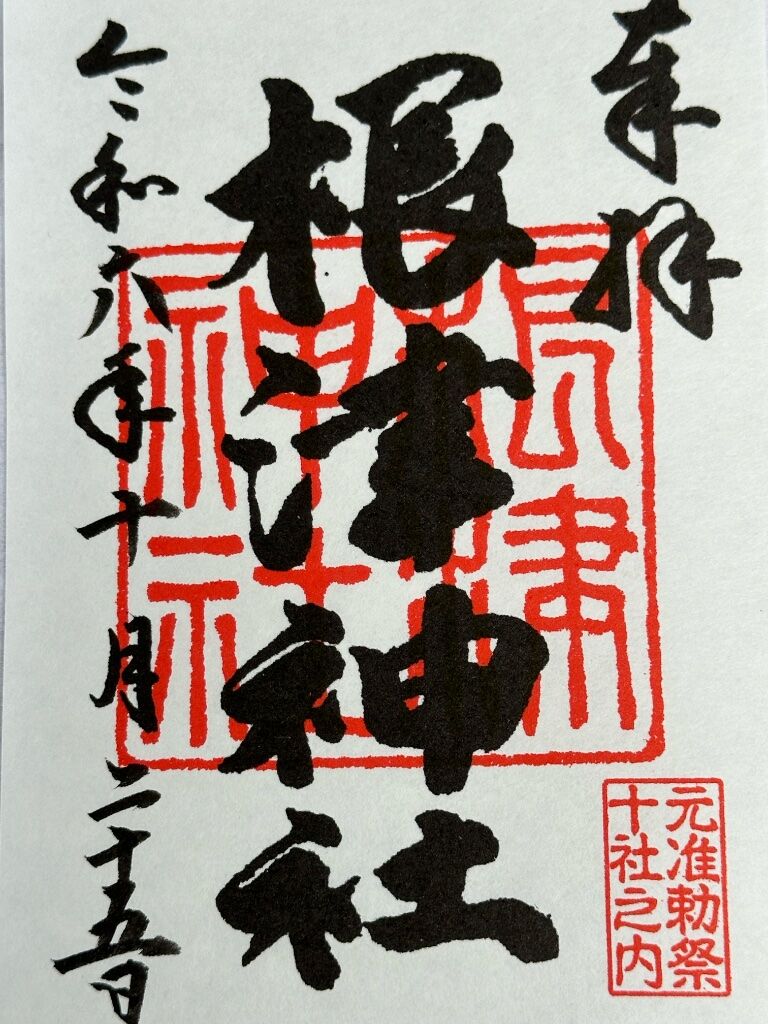 奉拝
根津神社
令和六年十月二十五日
根津
神社
元准勅祭
十社之内